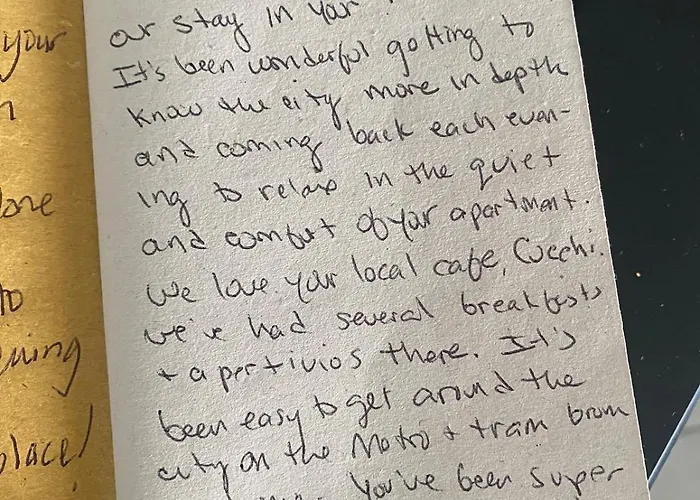 your
our stay in your
It's been wonderful getting to
know the city more in depth
and coming back each even-
ing to relax in the quiet
and comfort of your apartment.
We love your local cafe, Cucchi.
We've had several breakfasts
+ apertivios there. It's
been easy to get around the
city on the Metro + tram from
You've been super
to
place!